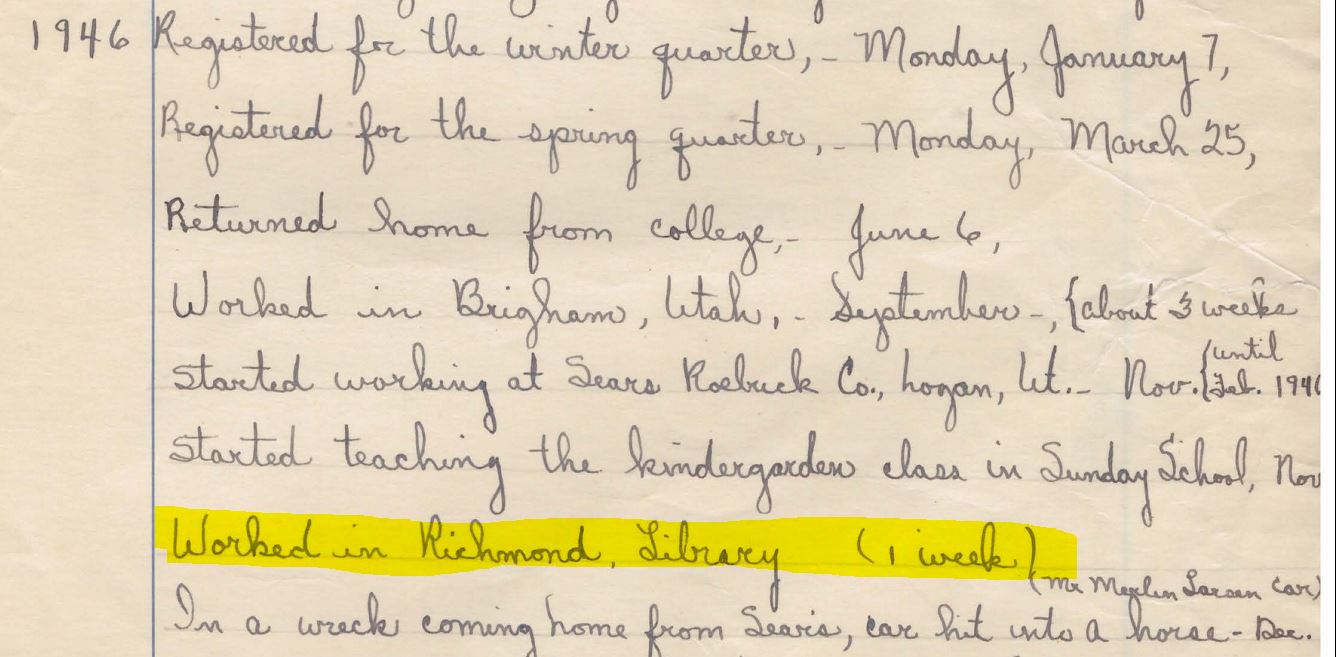 1946 Registered for the winter quarter,- Monday, January 7,
Registered for the spring quarter,- Monday, March 25,
Returned home from college,- June 6,
Worked in Brigham, Utah,- September-, {about 3 weeks
Started working at Sears Roebuck Co., Logan, Ut.- Nov. {until Feb. 194
Started teaching the kindergarden class in Sunday School, Nov
Worked in Richmond, Library (1 week)
(Mr Merlin Larsen car)
In a wreck coming home from Sears, car hit into a horse - Dec.